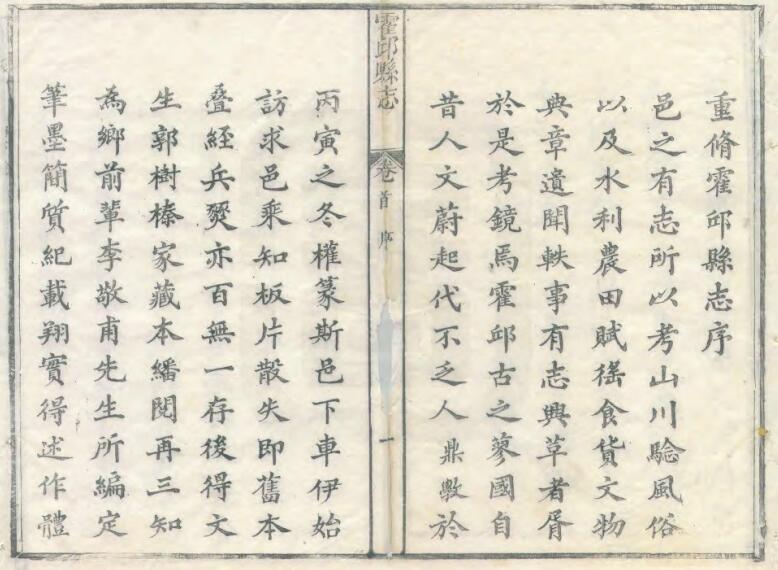 重脩霍邱縣志序
邑之有志所以考山川騐風俗
以及水利農田賦徭食貨文物
典章遺聞軼事有志興革者胥
於是考鏡焉霍邱古之蓼國自
昔人文蔚起代不乏人鼎斆於
霍邱縣志
卷首
序
一
丙寅之冬權篆斯邑下車伊始
訪求邑乘知板片散失即舊本
叠經兵燹亦百無一存後得文
生郭樹榛家藏本繙閱再三知
為鄉前輩李敬甫先生所編定
筆墨簡質紀載翔實得述作體